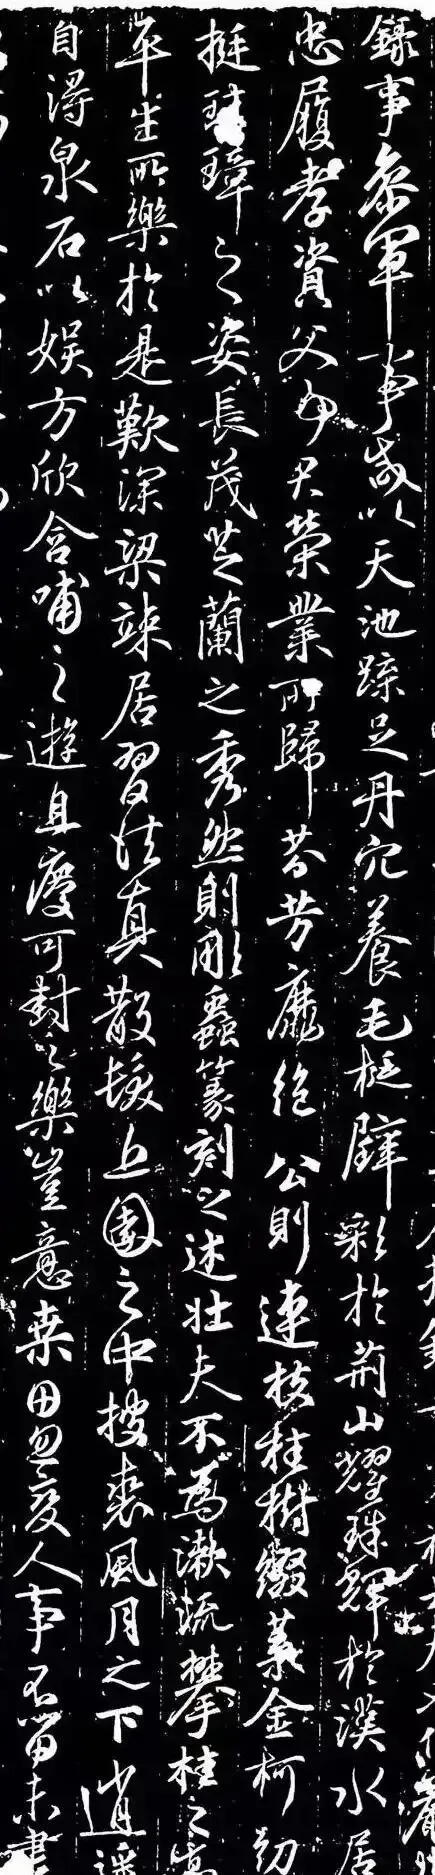 錄事參軍事咸以天池蹀足丹穴養毛梃璧彩於荊山耀珠輝於漢水居
忠履孝資父事君榮業所歸芬芳靡絕公則連枝桂樹綴萼金柯幼
挺珪璋之姿長茂芝蘭之秀然則彫蟲篆刻之述壯夫不為漱流攀桂之
平生所樂於是歎深梁竦居習法真散髮丘園之中披裘風月之下逍遙
自得泉石以娛方欣含哺之遊且慶可封之樂豈意桑田忽變人事不留未